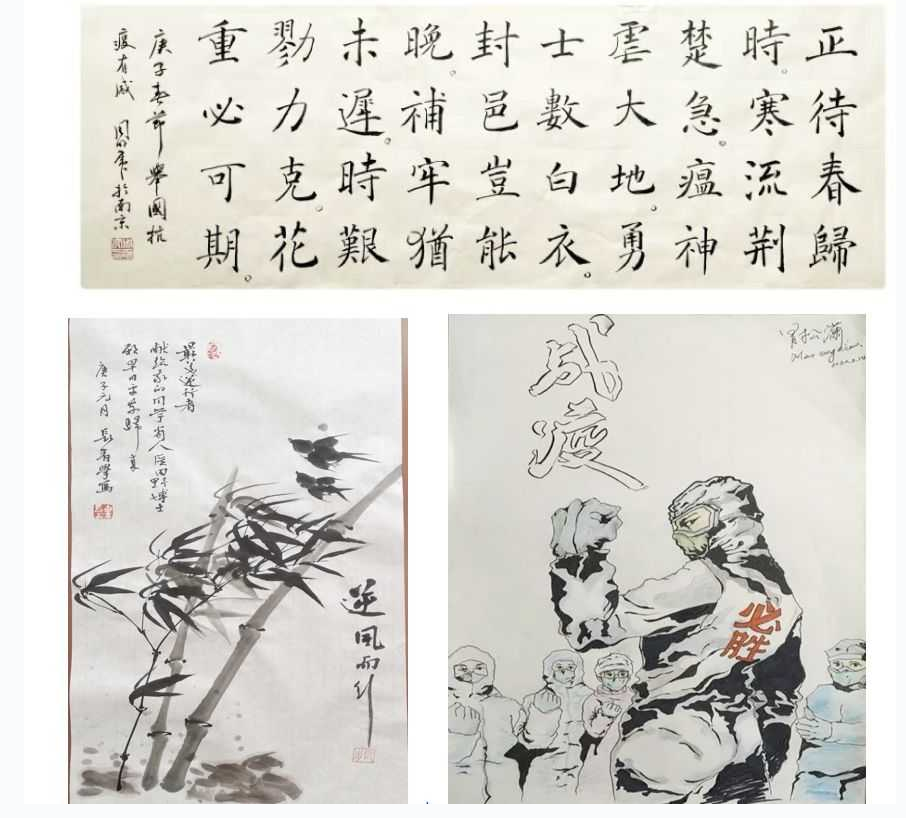 正待春歸
時。寒流荆
楚急。瘟神
虐大地。勇
士數白衣。
封邑豈能
晚。補牢猶
未遲。時艱
勠力克。花
重必可期。
庚子春節舉國抗
疫有感 於南京
最美逆行者
献给我的同学省人医田野博士
庚子元月
逆風而行
战疫
必胜